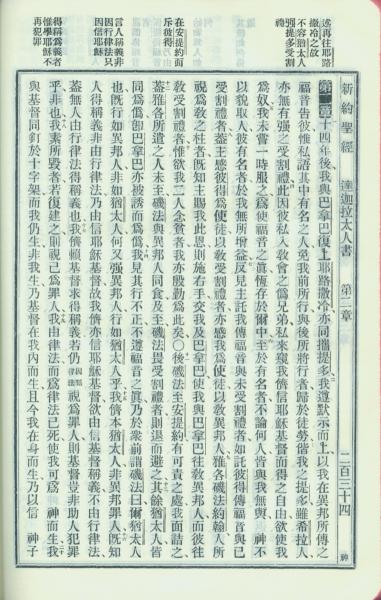 述再往耶路
撒冷之故
不容猶太人
強提多受割
禮
在安提約面
斥彼得
言人稱義非
因行律法只
因信耶穌
得稱爲義者
惟學耶穌不
再犯罪
新約聖經 達迦拉太人書 第二章 二百三十四 神
第二章十四年後、我與巴拿巴復上耶路撒冷、亦同攜提多、我遵默示而上、以我在異邦所傳之
福音告彼、惟私語其中有名之人、免我前所行、與後所將行者、歸於徒勞、偕我之提多、雖希拉人、
亦無有強之受割禮、此因彼私入教會之僞兄弟、私來窺我儕信耶穌基督而得之自由、欲使我
爲奴、我未嘗一時服之、爲使福音之眞恆存於爾中、至於有名者、不論何人、皆與我無與、神不
以貌取人、彼有名者於我無所增益、反見主託我傳福音與未受割禮者、如託彼得傳福音與已
受割禮者、蓋主感彼得爲使徒、以教受割禮者、亦感我爲使徒、以教異邦人、雅各磯法約翰、人所
視爲教之柱者、旣知主賜我此恩、則施右手交我及巴拿巴、使我與巴拿巴往教異邦人、而彼往
教受割禮者、惟欲我二人念貧者、我亦殷勤爲此矣○後磯法至安提約、有可責之處、我面詰之、
蓋雅各所遣之人未至、磯法與異邦人同食、及至、磯法畏受割禮者則退而避之、其餘猶太人皆
同爲僞、卽巴拿巴亦被誘而爲僞、我見其行不正、不遵福音之眞、乃於衆前謂磯法曰、爾猶太人
也、旣行如異邦人、非如猶太人、何又强異邦人行如猶太人乎、我儕本猶太人、非異邦罪人、旣知
人得稱義、非由行律法、乃由信耶穌基督、故我儕亦信耶穌基督、欲由信基督稱義、不由行律法、
蓋無人由行律法得稱義也、我儕賴基督求得稱義、若仍視爲罪人、則基督豈非助人犯罪
乎、非也、我素所毀者、若復建之、則視己爲罪人、我由律法而爲律法已死、使我可爲神而生、我
與基督同釘於十字架、而我仍生、非我生、乃基督在我內而生、且今我在身而生、乃以信神子